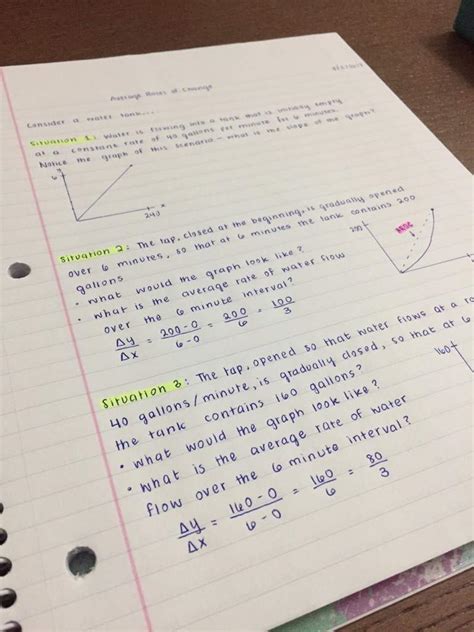 Average Rates of Change
Consider a water tank...
Situation 1: Water is flowing into a tank that is initially empty
at a constant rate of 40 gallons per minute for 6 minutes.
Notice the graph of this scenario - what is the slope of the graph?
y
6
x
240
Situation 2: The tap, closed at the beginning, is gradually opened
over 6 minutes, so that at 6 minutes the tank contains 200
gallons.
• what would the graph look like?
• what is the average rate of water flow
over the 6 minute interval?
Δy/Δx = 200-0/6-0 = 200/6 = 100/3
200
Situation 3: The tap, opened so that water flows at a
40 gallons/minute, is gradually closed, so that at 6
the tank contains 160 gallons?
• what would the graph look like?
• what is the average rate of water
flow over the 6 minute interval?
Δy/Δx = 160-0/6-0 = 160/6 = 80/3
160